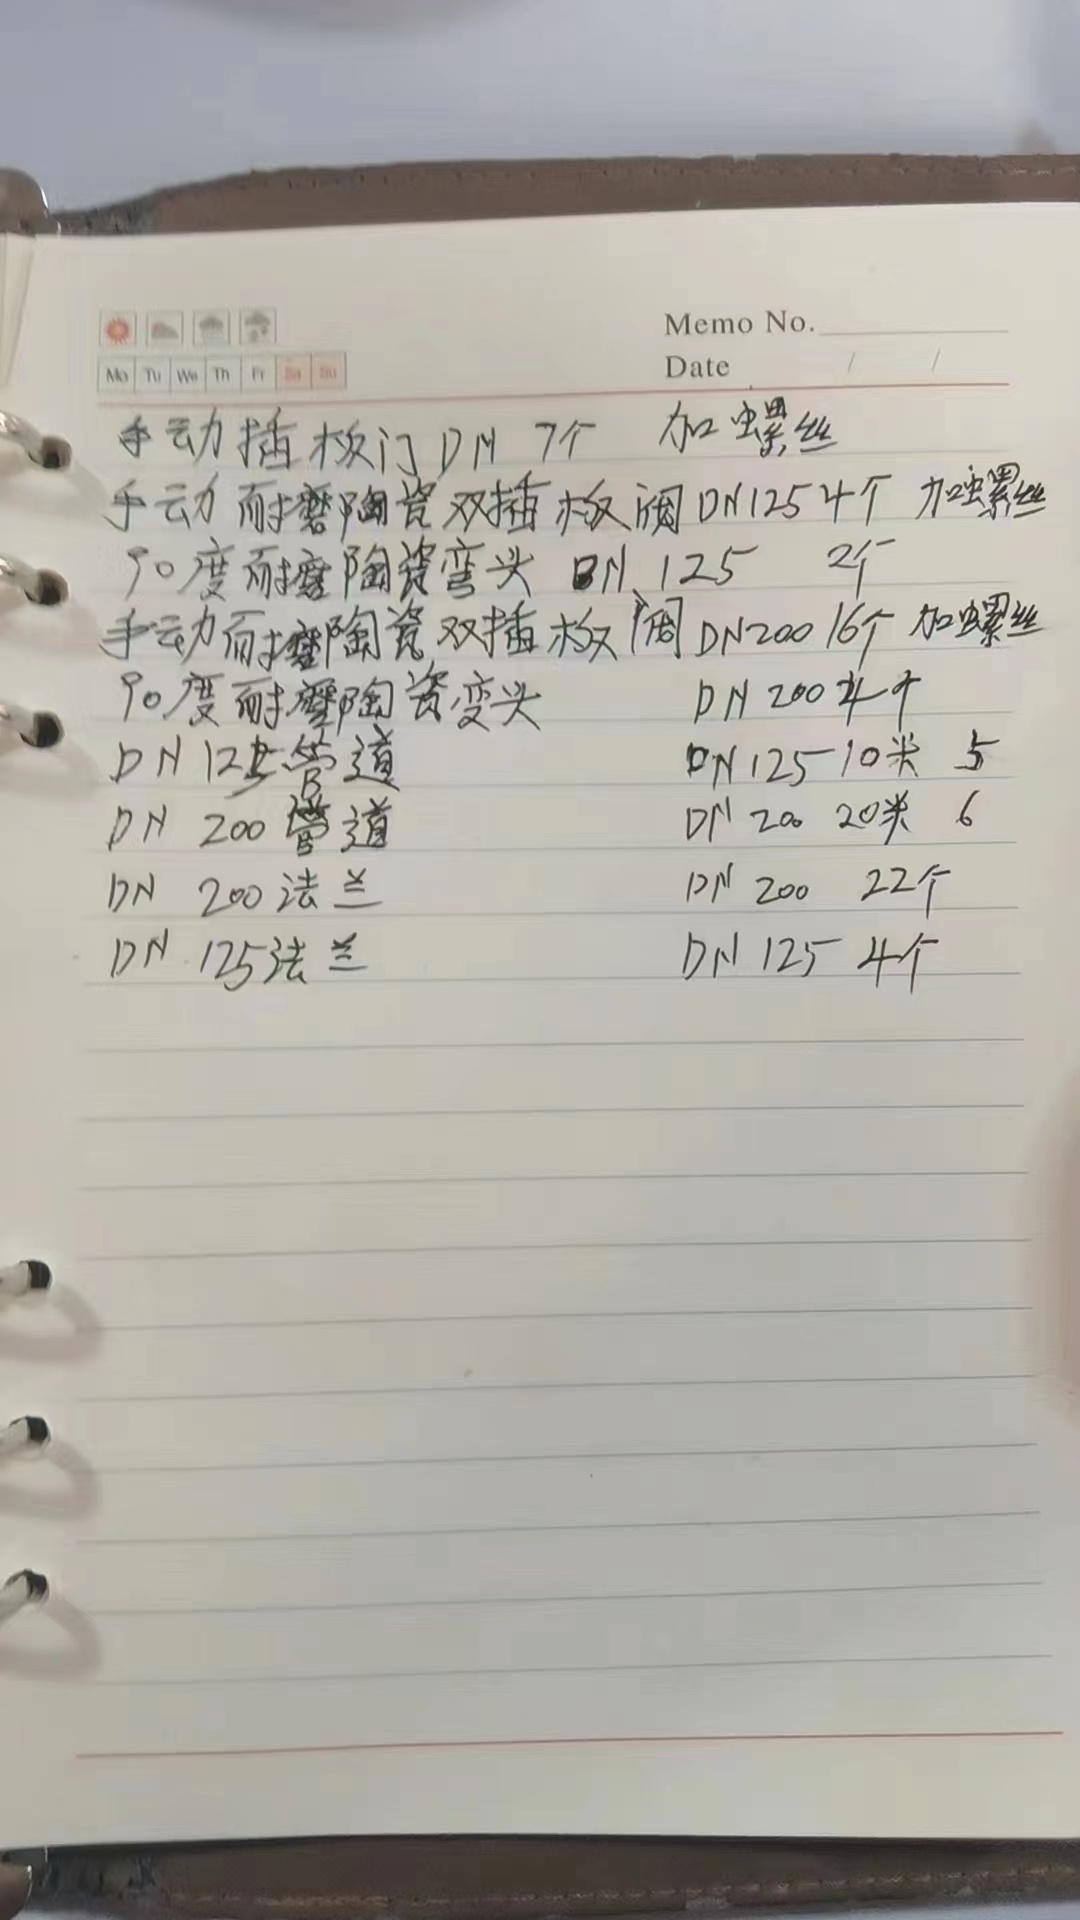 Memo No.
Mo Tu We Th Fr Sa Su
Date / /
手动插板门DN 7个 加螺丝
手动耐磨陶瓷双插板阀DN125 4个 加螺丝
90度耐磨陶瓷弯头 DN 125 2个
手动耐磨陶瓷双插板阀DN200 16个 加螺丝
90度耐磨陶瓷弯头 DN 200 4个
DN 125管道 DN 125 10米 5
DN 200管道 DN 200 20米 6
DN 200法兰 DN 200 22个
DN 125法兰 DN 125 4个